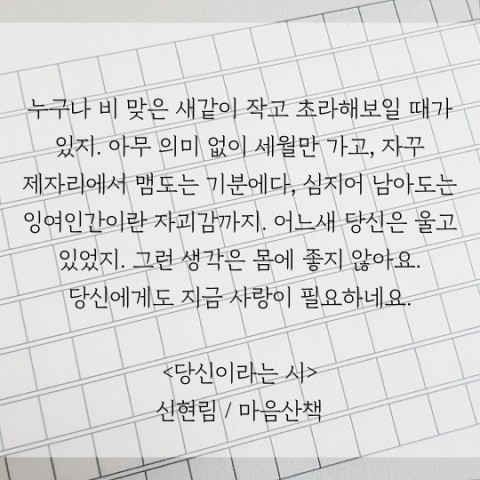 누구나 비 맞은 새같이 작고 초라해보일 때가
있지. 아무 의미 없이 세월만 가고, 자꾸
제자리에서 맴도는 기분에다, 심지어 남아도는
잉여인간이란 자괴감까지. 어느새 당신은 울고
있었지. 그런 생각은 몸에 좋지 않아요.
당신에게도 지금 사랑이 필요하네요.
<당신이라는 시>
신현림 / 마음산책